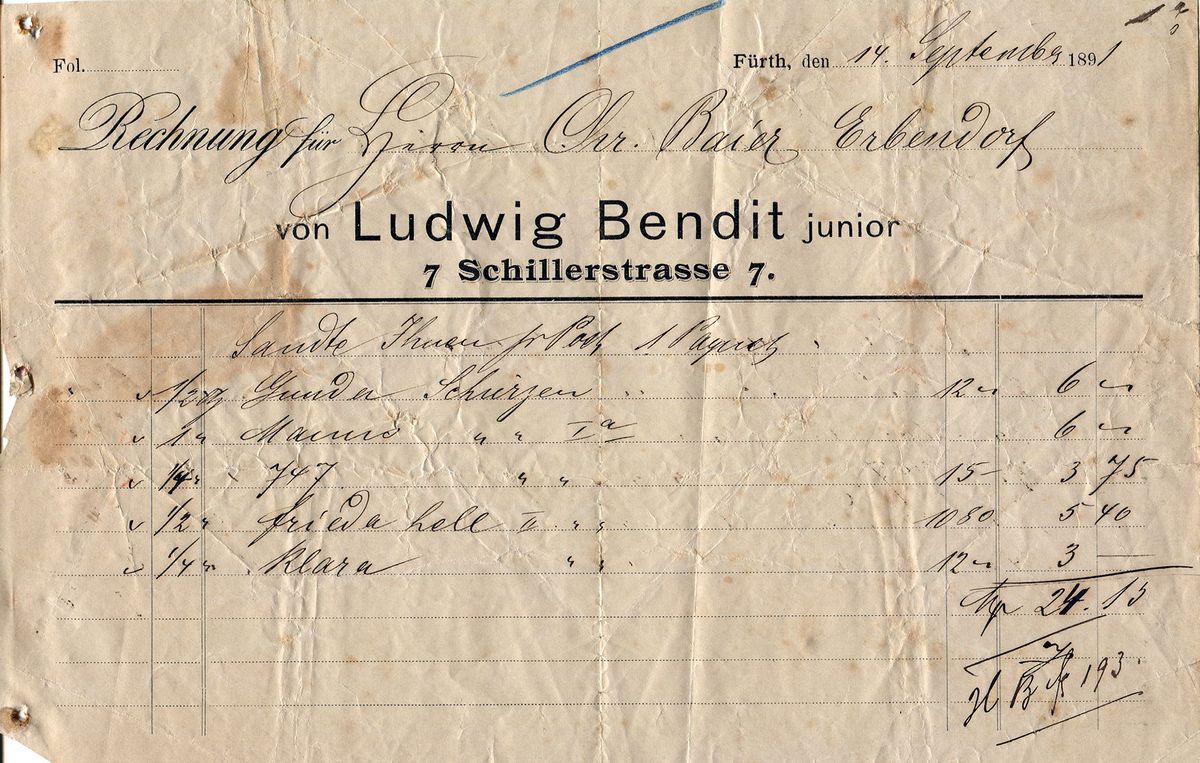 Fol.
Fürth, den 14. September 1891
Rechnung für Herrn Chr. Baier Erbendorf
von Ludwig Bendit junior
7 Schillerstrasse 7.
Sandte Ihnen pr Post 1 Paquet
1/2 Gunda Schürzen 12 6
1 " " " Ia 6
1/4 " 747 " " 15 3 75
1/2 " Frieda hell II " " 10 80 5 40
1/4 " Klara " " 12 3 —
24. 15
193.